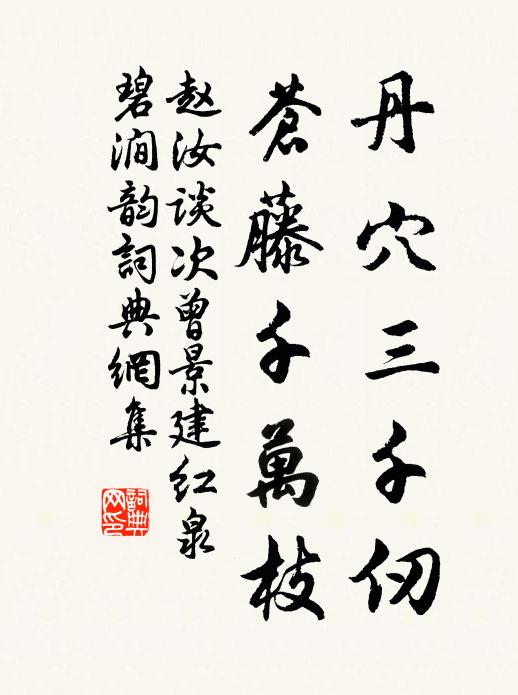 丹穴三千仞
蒼藤千萬枝
赵汝谈次曾景建红泉
碧澗韵詞典網集
詞典网印